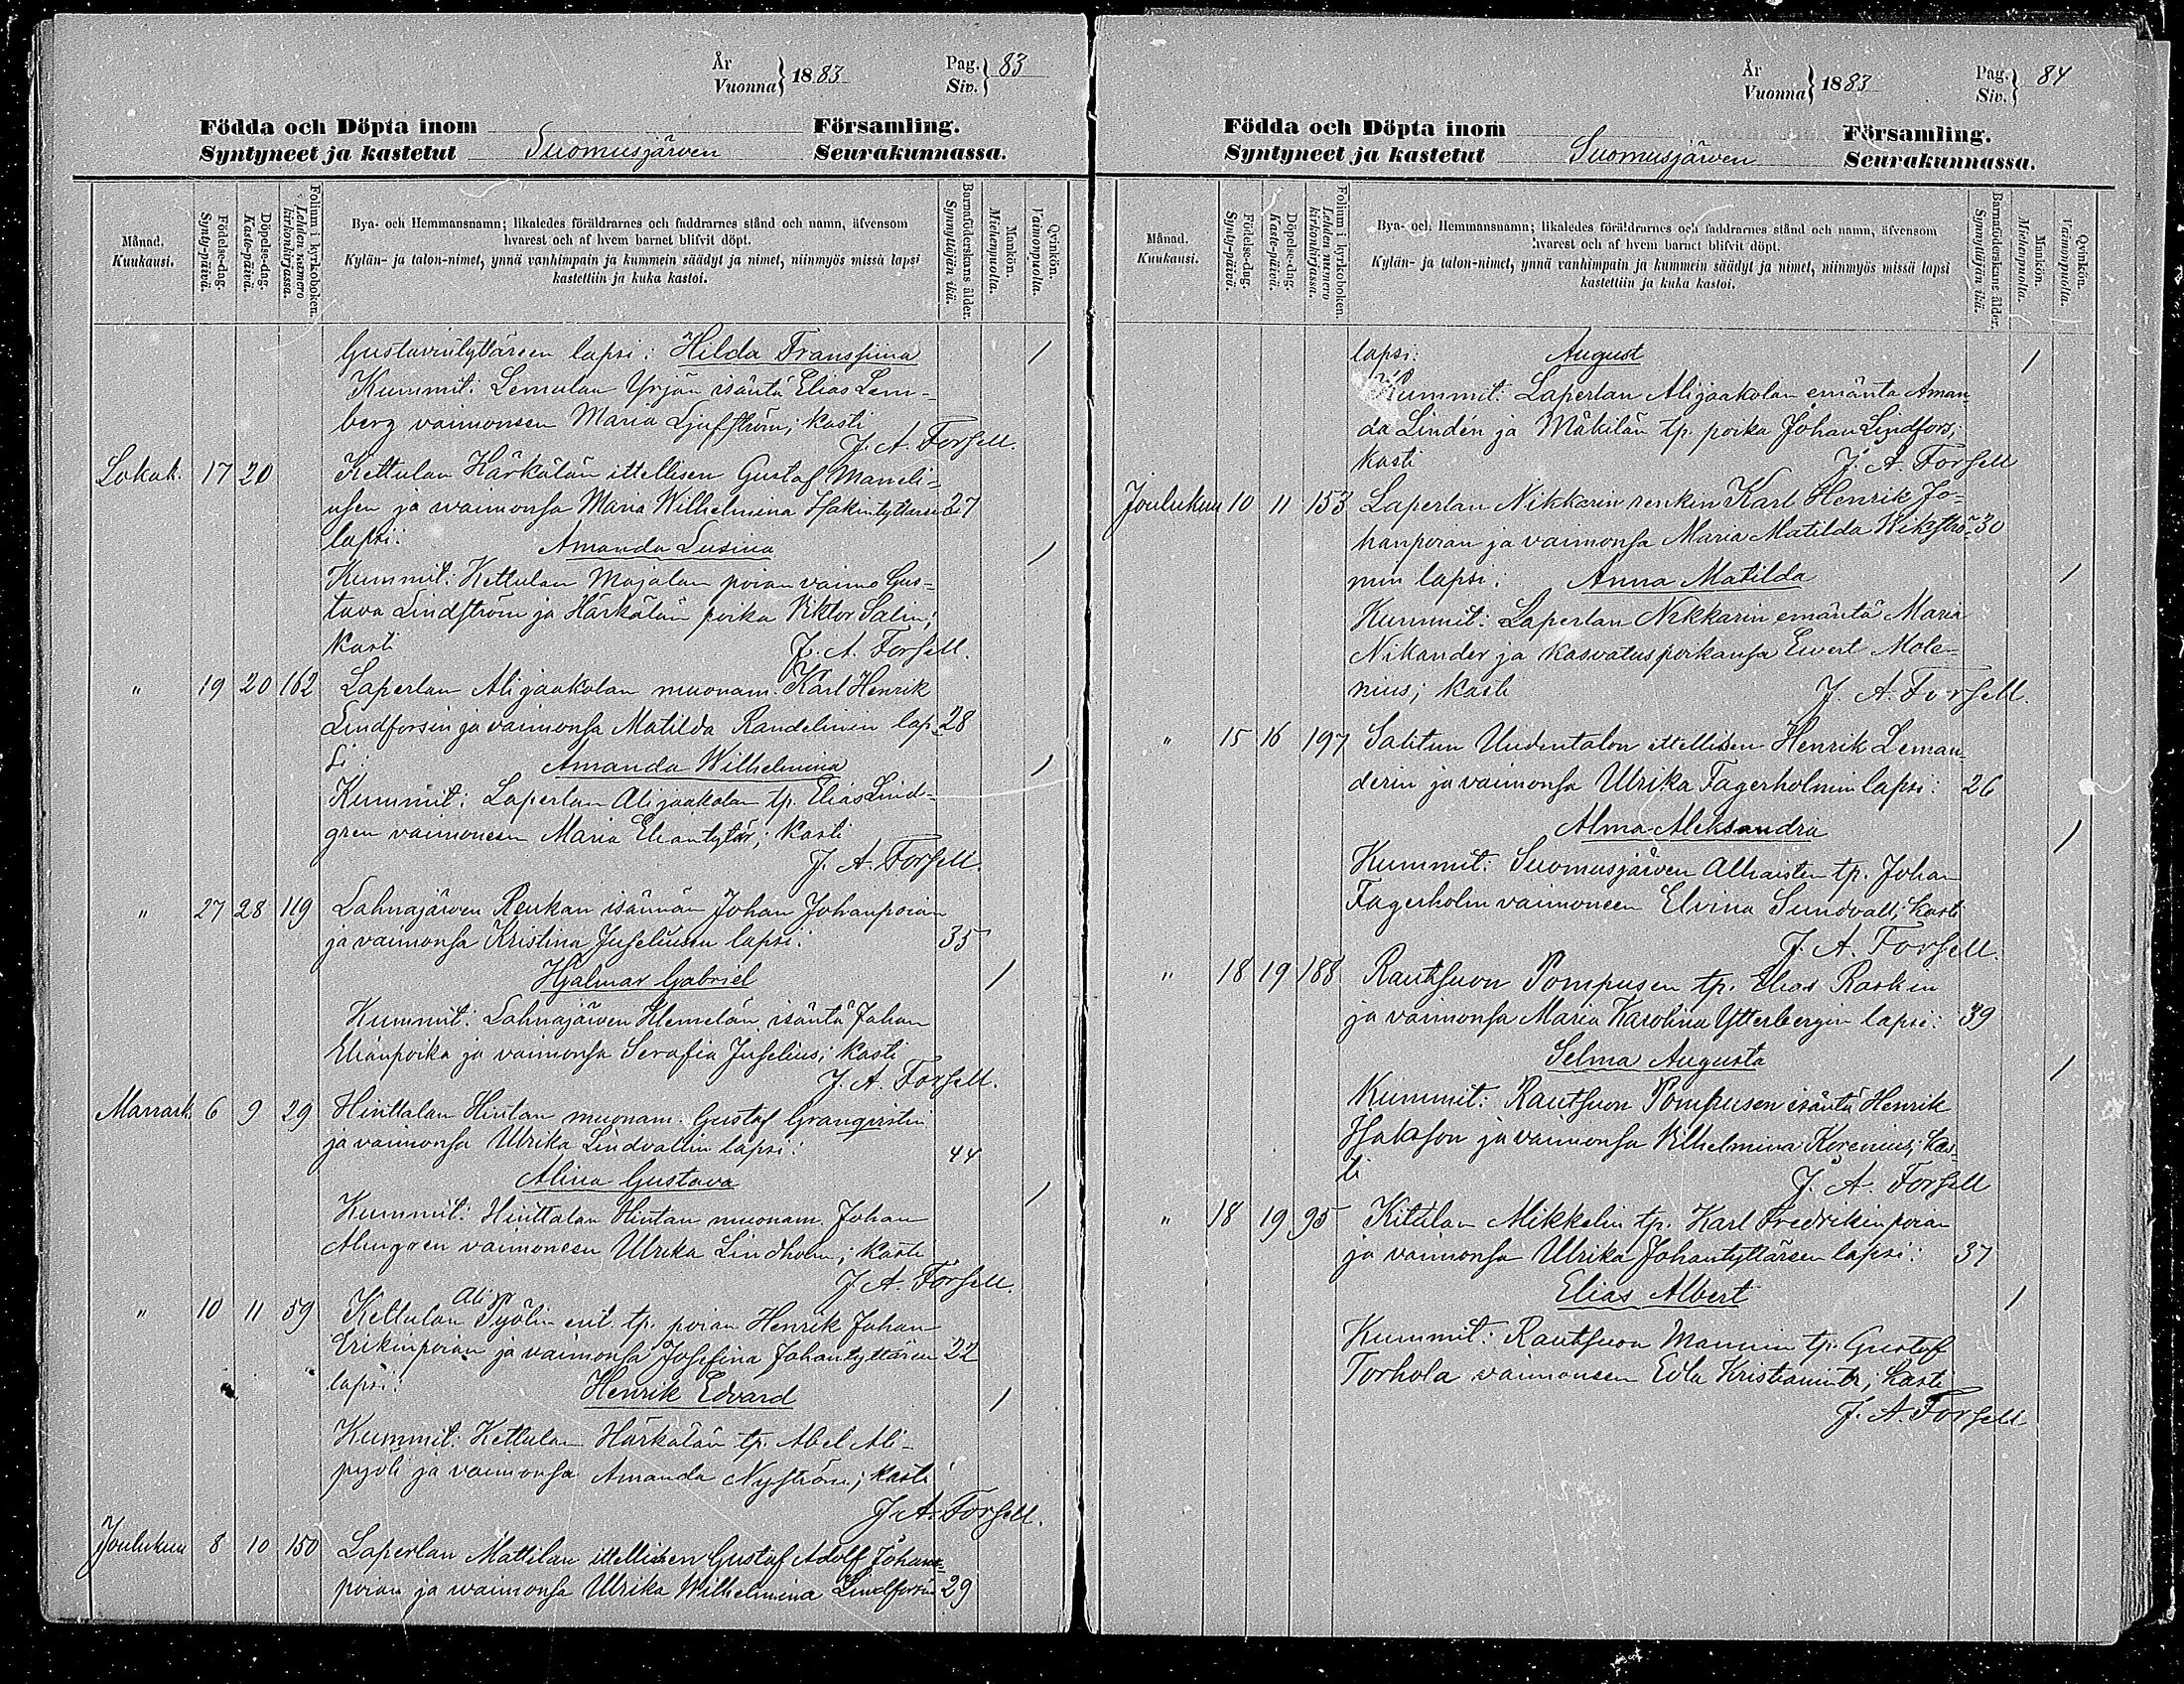 År
Vuonna } 1883
Pag.
Siv. } 83
Födda och Döpta inom Församling.
Syntyneet ja kastetut Suomusjärven Seurakunnassa.
Månad.
Kuukausi.
Födelse-dag.
Synty-päivä.
Döpelse-dag.
Kaste-päivä.
Folium i kyrkoboken.
Lehden numero kirkonkirjassa.
Bya- och Hemmansnamn; likaledes föräldrarnes och faddrarnes stånd och namn, äfvensom
hvarest och af hvem barnet blifvit döpt.
Kylän- ja talon-nimet, ynnä vanhimpain ja kummein säädyt ja nimet, niinmyös missä lapsi
kastettiin ja kuka kastoi.
Barnaföderskans ålder.
Synnyttäjän ikä.
Mankön.
Miehenpuolia.
Qvinkön.
Vaimonpuolia.
Gustavintyttären lapsi: Hilda Fransfiina 1
Kummit: Lemulan Yrjön isäntä Elias Lem-
berg vaimoneen Maria Ljufström; kasti
J. A. Forsell.
Lokak. 17 20 Kettulan Härkälän ittellisen Gustaf Maneli-
uksen ja waimonsa Maria Wilhelmina Isakintyttären 27
lapsi: Amanda Lusina 1
Kummit: Kettulan Majalan poian vaimo Gus-
tava Lindström ja Härkälän poika Viktor Salin;
kasti J. A. Forsell.
" 19 20 162 Laperlan Alijaakolan muonam. Karl Henrik
Lindforsin ja vaimonsa Matilda Randelinin lap- 28
si: Amanda Wilhelmina 1
Kummit: Laperlan Alijaakolan tp. Elias Lind-
gren vaimoneen Maria Eliantytär; kasti
J. A. Forsell.
" 27 28 119 Lahnajärven Reukan isännän Johan Johanpoian
ja vaimonsa Kristina Juseliusen lapsi: 35
Hjalmar Gabriel 1
Kummit: Lahnajärven Klemelän isäntä Johan
Elianpoika ja vaimonsa Serafia Juselius; kasti
J. A. Forsell.
Marrask. 6 9 29 Hintalan Hintan muonam. Gustaf Granqvistin
ja vaimonsa Ulrika Lindvallin lapsi: 44
Alina Gustava 1
Kummit: Hintalan Hintan muonam. Johan
Almgren vaimoneen Ulrika Lindholm; kasti
J. A. Forsell.
" 10 11 59 Kettulan Ali Pyölin ent. tp. poian Henrik Johan
Erikinpoian ja vaimonsa Josefina Johantyttären 22
lapsi: Henrik Edvard 1
Kummit: Kettulan Härkälän tp. Abel Ali-
pyöli ja vaimonsa Amanda Nyström; kasti
J. A. Forsell.
Joulukuu 8 10 150 Laperlan Mattilan ittellisen Gustaf Adolf Johan-
poian ja waimonsa Ulrika Wilhelmina Lindforsin 29
År
Vuonna } 1883
Pag.
Siv. } 84
Födda och Döpta inom Församling.
Syntyneet ja kastetut Suomusjärven Seurakunnassa.
Månad.
Kuukausi.
Födelse-dag.
Synty-päivä.
Döpelse-dag.
Kaste-päivä.
Folium i kyrkoboken.
Lehden numero kirkonkirjassa.
Bya- och Hemmansnamn; likaledes föräldrarnes och faddrarnes stånd och namn, äfvensom
hvarest och af hvem barnet blifvit döpt.
Kylän- ja talon-nimet, ynnä vanhimpain ja kummein säädyt ja nimet, niinmyös missä lapsi
kastettiin ja kuka kastoi.
Barnaföderskans ålder.
Synnyttäjän ikä.
Mankön.
Miehenpuolia.
Qvinkön.
Vaimonpuolia.
lapsi: August 1
Kummit: Laperlan Alijaakolan emäntä Aman-
da Lindén ja Mäkilän tp. poika Johan Lindfors;
kasti J. A. Forsell
Joulukuu 10 11 153 Laperlan Nikkarin renkin Karl Henrik Jo-
hanpoian ja vaimonsa Maria Matilda Wikströ- 30
min lapsi: Anna Matilda 1
Kummit: Laperlan Nikkarin emäntä Maria
Nikander ja kasvatuspoikansa Evert Mole-
nius; kasti J. A. Forsell.
" 15 16 197 Salitun Uudentalon ittellisen Henrik Leman-
derin ja vaimonsa Ulrika Fagerholmin lapsi: 26
Alma Aleksandra 1
Kummit: Suomusjärven Alhaisten tp. Johan
Fagerholm vaimoneen Elvina Sundvall; kasti
J. A. Forsell.
" 18 19 188 Rautsuon Pompusen tp. Elias Raskin
ja vaimonsa Maria Karolina Ytterbergin lapsi: 39
Selma Augusta 1
Kummit: Rautsuon Pompusen isäntä Henrik
Isaksson ja vaimonsa Vilhelmina Korenius; kas-
ti J. A. Forsell
" 18 19 95 Kitulan Mikkelin tp. Karl Fredrikinpoian
ja vaimonsa Ulrika Johantyttären lapsi: 37
Elias Albert 1
Kummit: Rautsuon Mannin tp. Gustaf
Torhola vaimoneen Eva Kristianintr; kasti
J. A. Forsell